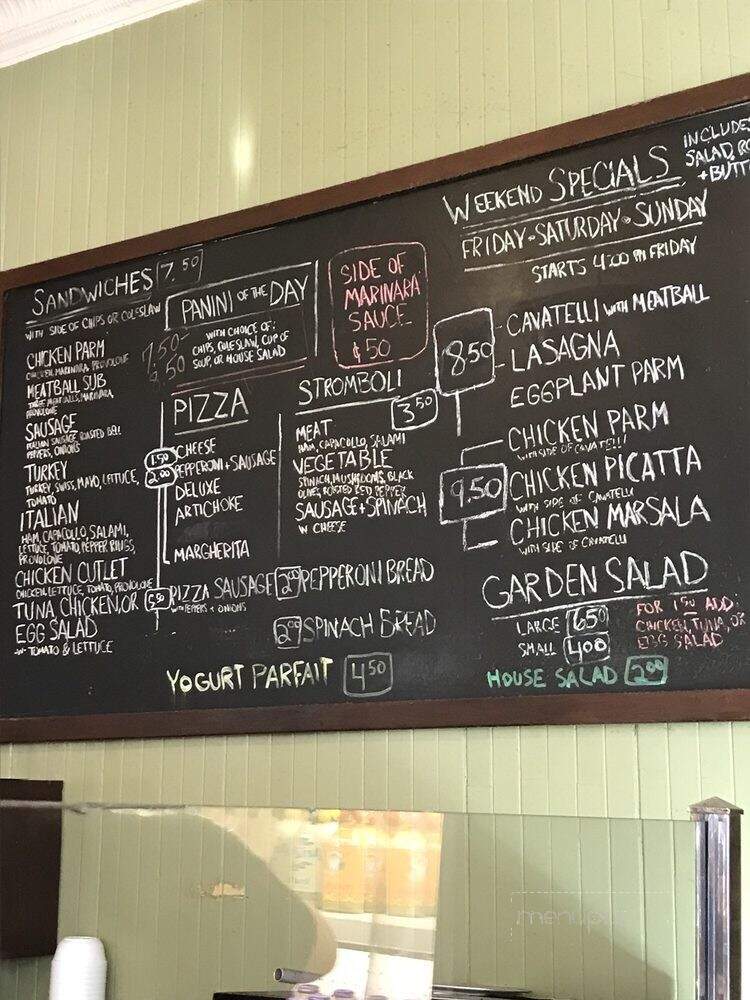 SANDWICHES 7.50
WITH SIDE OF CHIPS OR COLESLAW
CHICKEN PARM
CHICKEN, MARINARA, PROVOLONE
MEATBALL SUB
THREE MEATBALLS, MARINARA,
PROVOLONE
SAUSAGE
ITALIAN SAUSAGE ROASTED BELL
PEPPERS, ONIONS
TURKEY
TURKEY, SWISS, MAYO, LETTUCE,
TOMATO
ITALIAN
HAM, CAPACOLLO, SALAMI,
LETTUCE, TOMATO, PEPPER RINGS,
PROVOLONE
CHICKEN CUTLET
CHICKEN, LETTUCE, TOMATO, PROVOLONE
TUNA CHICKEN, OR
EGG SALAD
W- TOMATO & LETTUCE
PANINI OF THE DAY
7.50
WITH CHOICE OF:
CHIPS, COLESLAW, CUP OF
SOUP, OR HOUSE SALAD
PIZZA
1.50 CHEESE
2.00 PEPPERONI + SAUSAGE
DELUXE
ARTICHOKE
MARGHERITA
PIZZA SAUSAGE
WITH PEPPERS + ONIONS
SIDE OF
MARINARA
SAUCE
$.50
STROMBOLI
3.50
MEAT
HAM, CAPACOLLO, SALAMI
VEGETABLE
SPINACH, MUSHROOMS, BLACK
OLIVES, ROASTED RED PEPPER
SAUSAGE + SPINACH
W CHEESE
2.00 PEPPERONI BREAD
2.00 SPINACH BREAD
YOGURT PARFAIT 4.50
WEEKEND SPECIALS
FRIDAY - SATURDAY - SUNDAY
STARTS 4:00 PM FRIDAY
INCLUDES
SALAD,
+ BUTT
8.50
CAVATELLI WITH MEATBALL
LASAGNA
EGGPLANT PARM
9.50
CHICKEN PARM
WITH SIDE OF CAVATELLI
CHICKEN PICATTA
WITH SIDE OF CAVATELLI
CHICKEN MARSALA
WITH SIDE OF CAVATELLI
GARDEN SALAD
LARGE 6.50
SMALL 4.00
FOR 1.50 ADD:
CHICKEN, TUNA, OR
EGG SALAD
HOUSE SALAD 2.00